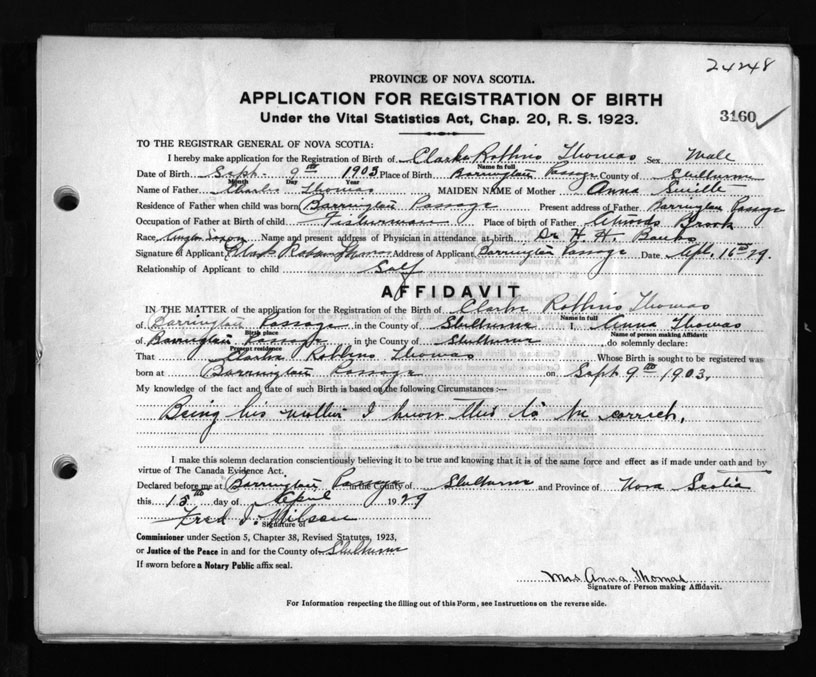 24248
PROVINCE OF NOVA SCOTIA.
APPLICATION FOR REGISTRATION OF BIRTH
Under the Vital Statistics Act, Chap. 20, R. S. 1923.
3160
TO THE REGISTRAR GENERAL OF NOVA SCOTIA:
I hereby make application for the Registration of Birth of Clarke Robbins Thomas Sex Male
Name in full
Date of Birth Sept. 9th 1903 Place of Birth Barrington Passage County of Shelburne
Month Day Year
Name of Father Charles Thomas MAIDEN NAME of Mother Anna
Residence of Father when child was born Barrington Passage Present address of Father Barrington Passage
Occupation of Father at Birth of child Fisherman Place of birth of Father Atwoods Brook
Race Anglo Saxon Name and present address of Physician in attendance at birth Dr. H. H. Banks
Signature of Applicant Clark Robbins Thomas Address of Applicant Barrington Passage Date Apl. 16th 29.
Relationship of Applicant to child Self
AFFIDAVIT
IN THE MATTER of the application for the Registration of the Birth of Clarke Robbins Thomas
Name in full
of Barrington Passage in the County of Shelburne I, Anna Thomas
Birth place Name of person making Affidavit
of Barrington Passage in the County of Shelburne do solemnly declare:
Present residence
That Clarke Robbins Thomas Whose Birth is sought to be registered was
born at Barrington Passage on Sept. 9th 1903.
My knowledge of the fact and date of such Birth is based on the following Circumstances :—
Being his mother I know this to be correct.
I make this solemn declaration conscientiously believing it to be true and knowing that it is of the same force and effect as if made under oath and by
virtue of The Canada Evidence Act.
Declared before me at Barrington Passage in the County of Shelburne and Province of Nova Scotia
this 15th day of April 1929
Fred J. Wilson
Signature of
Commissioner under Section 5, Chapter 38, Revised Statutes, 1923,
or Justice of the Peace in and for the County of Shelburne
If sworn before a Notary Public affix seal.
Mrs Anna Thomas
Signature of Person making Affidavit.
For Information respecting the filling out of this Form, see Instructions on the reverse side.